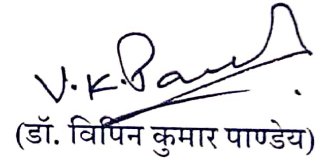 V.K.Pandey
(डॉ. विपिन कुमार पाण्डेय)